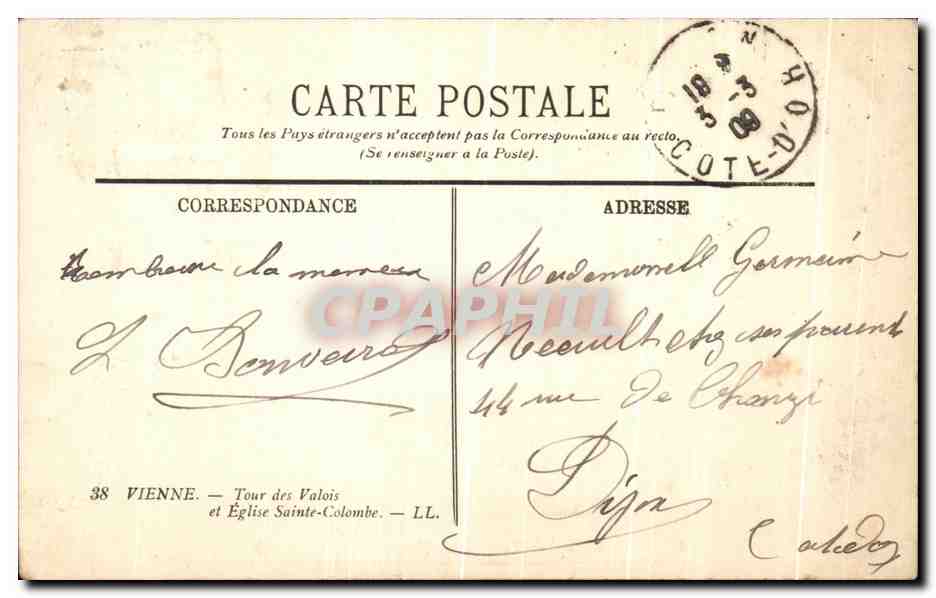 CARTE POSTALE
Tous les Pays étrangers n'acceptent pas la Correspondance au recto.
(Se renseigner a la Poste).
CORRESPONDANCE
la
L
38 VIENNE. — Tour des Valois
et Église Sainte-Colombe. — LL.
ADRESSE
Mademoiselle Germaine
chez ses parent
44 rue de Chanzi
Dijon
COTE-D'OR
18 3
3 09
CPAPHIL